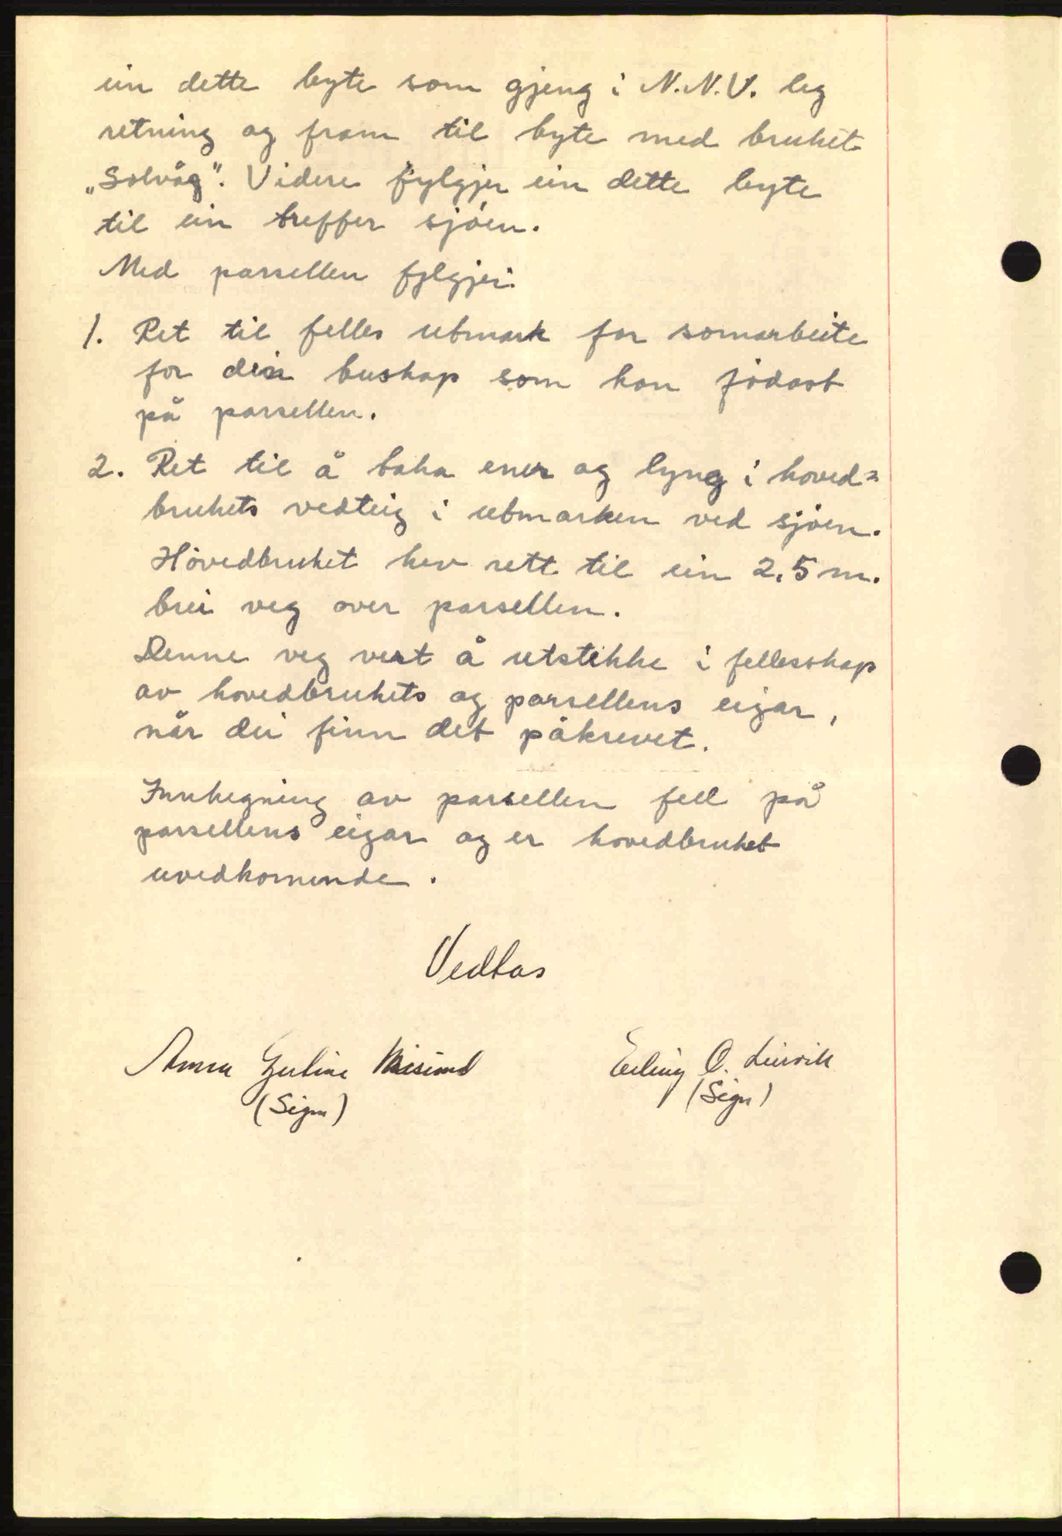 ein dette byte som gjeng i N.N.V. leg
retning og fram til byte med bruket
„Solvåg". Videre fylgjer ein dette byte
til ein treffer sjøen.
Med parsellen fylgjer:
1. Ret til felles utmark for somarbeite
for dein buskap som kan födast
på parsellen.
2. Ret til å taka ener og lyng i hoved=
brukets vedteig i utmarken ved sjøen.
Hovedbruket hev rett til ein 2,5 m.
brei veg over parsellen.
Denne veg vert å utstikke i fellesskap
av hovedbrukets og parsellens eigar,
når dei finn det påkrevet.
Innhegning av parsellen fell på
parsellens eigar og er hovedbruket
uvedkomende.
Vedtas
Anna Gurline Misund
Erling O. Leirvik
(Sign)
(Sign)